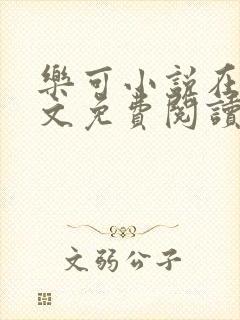 樂可小說在
文免費閱讀
文弱公子